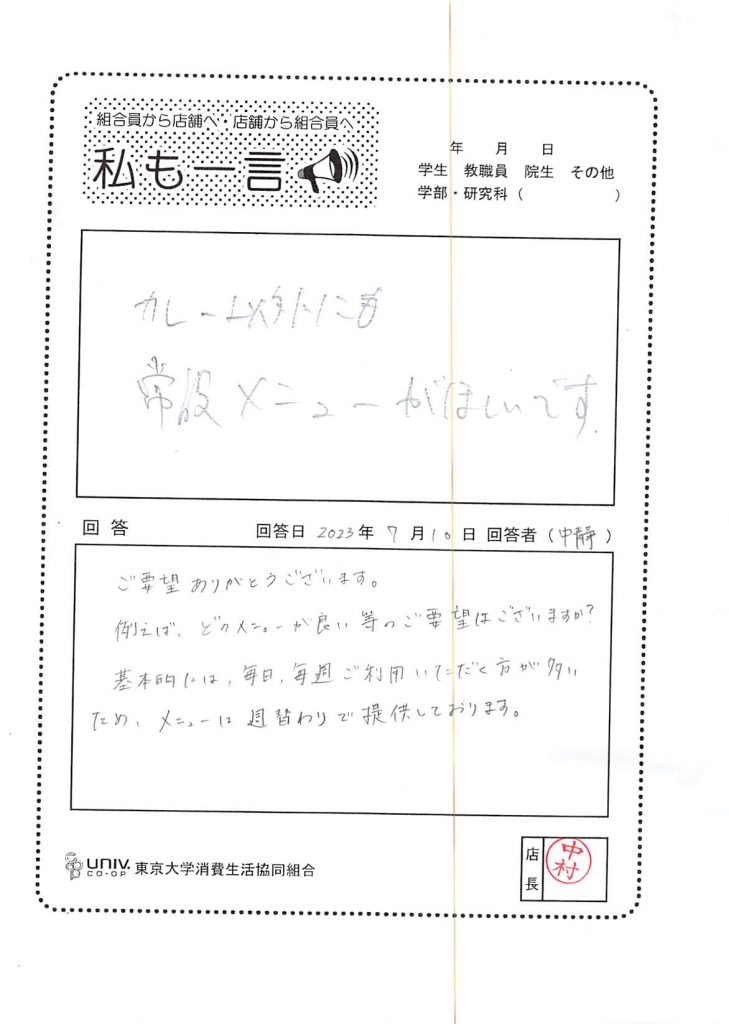 組合員から店舗へ・店舗から組合員へ
私も一言
年 月 日
学生 教職員 院生 その他
学部・研究科( )
カレー以外にも
常設メニューがほしいです.
回答 回答日 2023年 7月10日 回答者(中静)
ご要望ありがとうございます。
例えば、どのメニューが良い等のご要望はございますか?
基本的には、毎日、毎週ご利用いただく方が多い
ため、メニューは週替わりで提供しております。
UNIV. CO-OP 東京大学消費生活協同組合
店長
中村